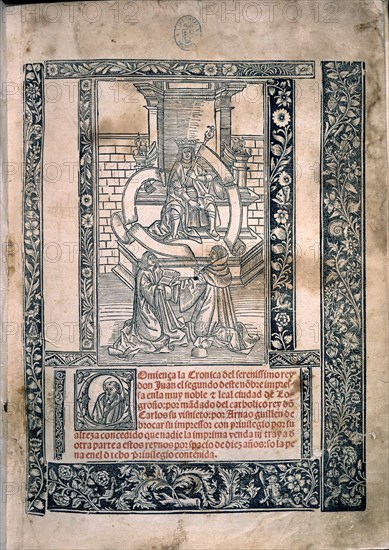 Comiença la Cronica del serenissimo rey
don Juan el segundo deste nõbre impres-
sa enla muy noble ⁊ leal ciudad d̃ Lo
groño: por mãdado del catholico rey dõ
Carlos su visnieto: por Arnao guillen de
brocar su impressor con privilegio por su
alteza concedido que nadie la imprima venda ni trayã d̃
otra parte a estos reynos por spacio de diez años: so la pe
na en el dicho privilegio contenida.